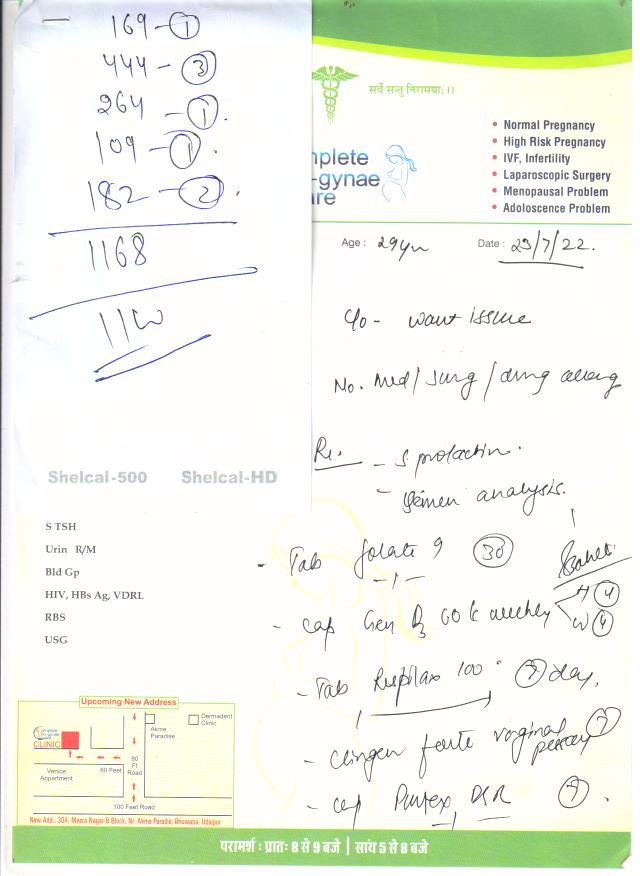 169 - 1
444 - 3
264 - 1
109 - 1
182 - 2
1168
Shelcal-500 Shelcal-HD
सर्वे सन्तु निरामयाः ।।
nplete
-gynae
are
• Normal Pregnancy
• High Risk Pregnancy
• IVF, Infertility
• Laparoscopic Surgery
• Menopausal Problem
• Adoloscence Problem
Age : 29yrs Date : 23/7/22.
c/o - want issue
No. Med / Surg / drug allerg
- S. prolactin.
- Semen analysis.
S TSH
Urin R/M
Bld Gp
HIV, HBs Ag, VDRL
RBS
USG
- Tab folate 9 30
- cap Gen D3 60 k weekly H 4
W 4
- Tab 100 7 day,
- clingen forte vaginal pessary 7
- cap DSR 7.
Upcoming New Address
CLINIC
Akme Paradise
Dermadent Clinic
Venice Appartment
60 Feet
80 Ft Road
100 Feet Road
New Add.: 304, Meera Nagar-B Block, Nr. Akme Paradie, Bhuwana, Udaipur
परामर्श : प्रातः 8 से 9 बजे | सायं 5 से 8 बजे